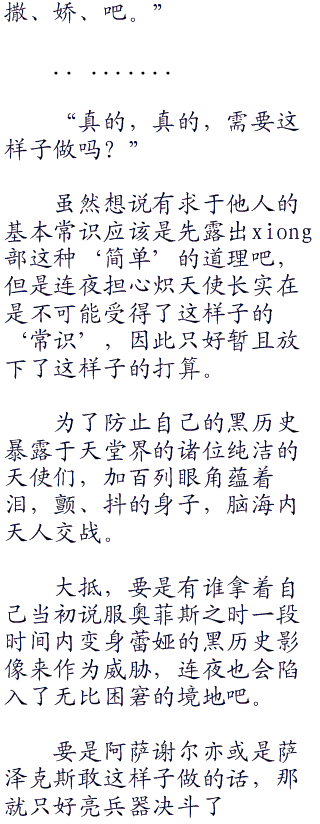 撒、娇、吧。”
．．．．．．．．．
“真的，真的，需要这
样子做吗？”
虽然想说有求于他人的
基本常识应该是先露出xiong
部这种‘简单’的道理吧，
但是连夜担心炽天使长实在
是不可能受得了这样子的
‘常识’，因此只好暂且放
下了这样子的打算。
为了防止自己的黑历史
暴露于天堂界的诸位纯洁的
天使们，加百列眼角蕴着
泪，颤、抖的身子，脑海内
天人交战。
大抵，要是有谁拿着自
己当初说服奥菲斯之时一段
时间内变身蕾娅的黑历史影
像来作为威胁，连夜也会陷
入了无比困窘的境地吧。
要是阿萨谢尔亦或是萨
泽克斯敢这样子做的话，那
就只好亮兵器决斗了